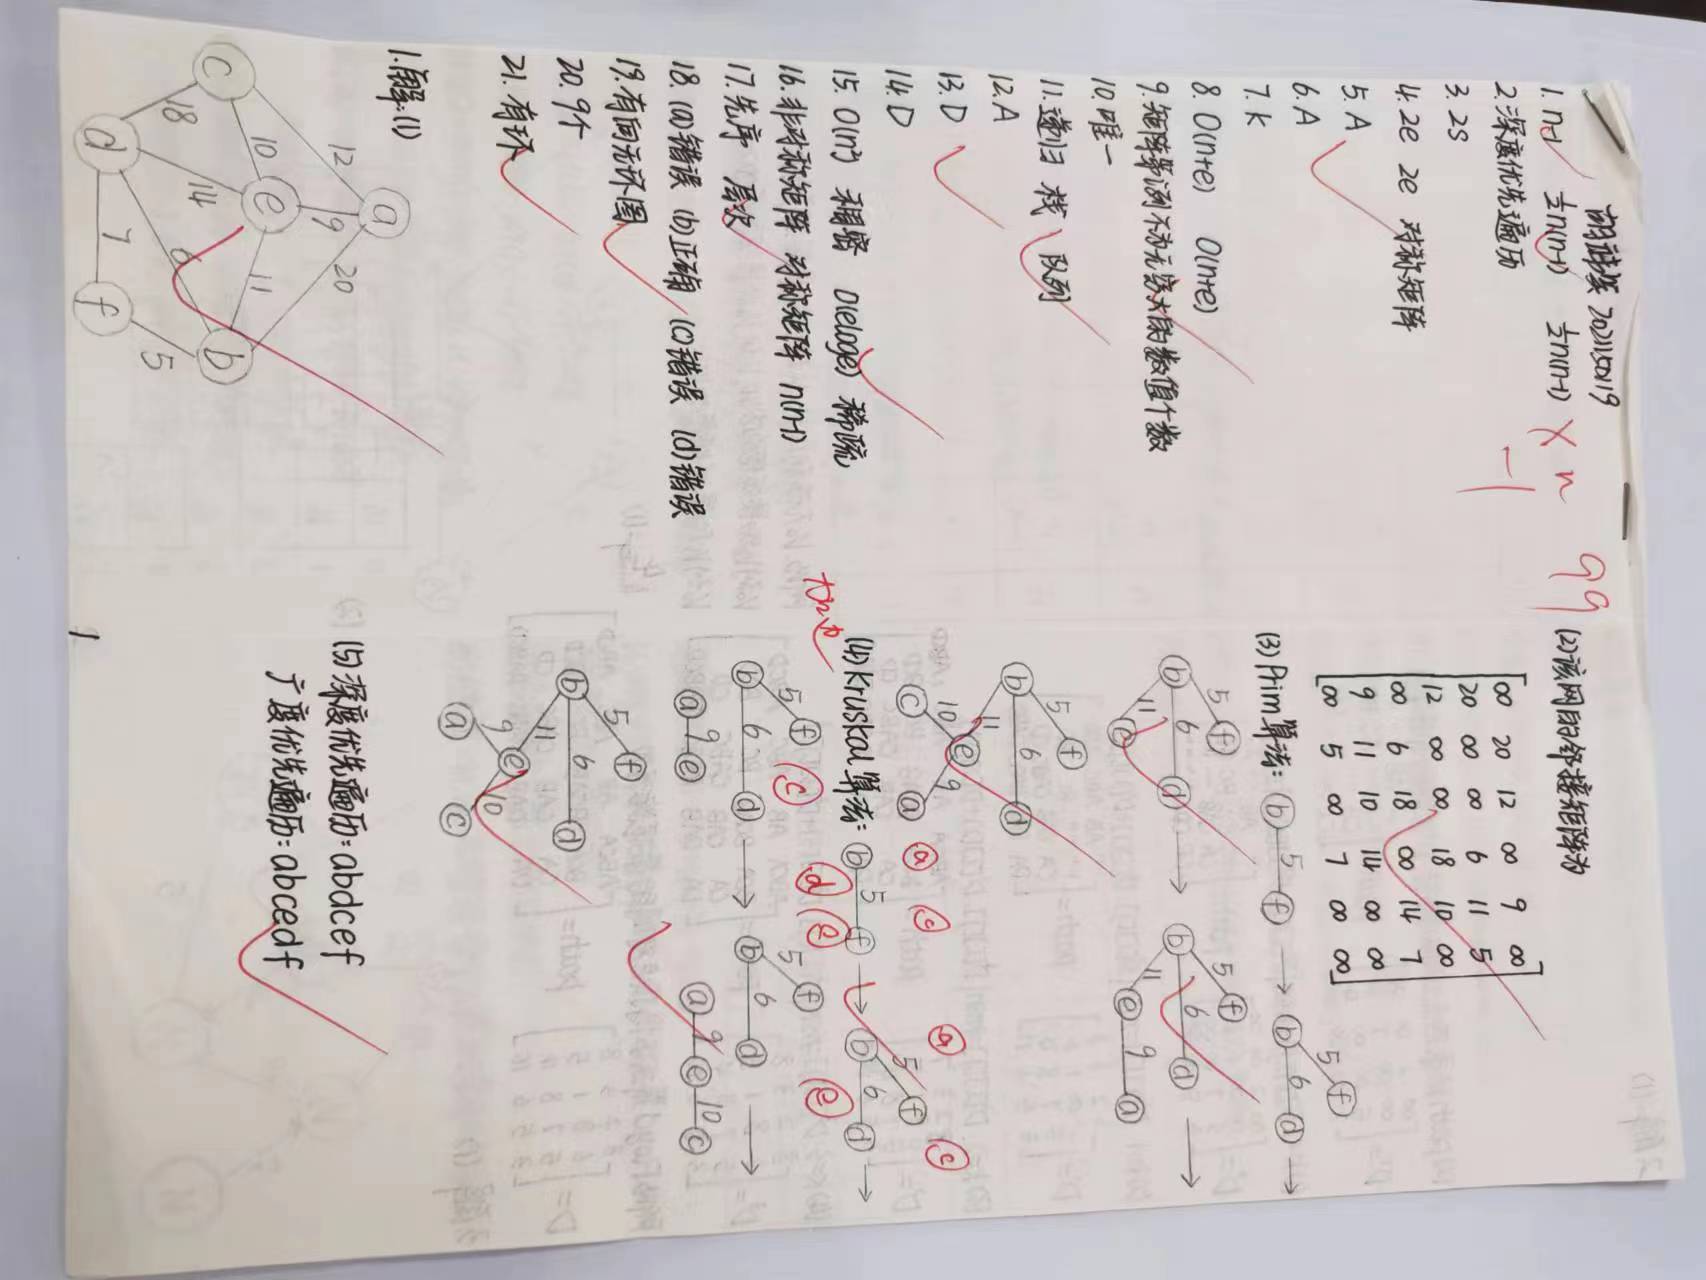 2021150119
99
1. n-1 ½n(n-1) ½n(n-1) × n
-1
2. 深度优先遍历
3. 2S
4. 2e 2e 对称矩阵
5. A
6. A
7. K
8. O(n+e) O(n+e)
9. 矩阵第i列不为无穷大的数值个数
10. 唯一
11. 递归 栈 队列
12. A
13. D
14. D
15. O(n²) 稠密 O(eloge) 稀疏
16. 非对称矩阵 对称矩阵 n(n-1)
17. 先序 层次
18. (a)错误 (b)正确 (c)错误 (d)错误
19. 有向无环图
20. 9个
21. 有环
1.解:(1)
a
12 9 20
10 e 11
c b
18 14 6 5
d 7 f
(2)该网的邻接矩阵为
∞ 20 12 ∞ 9 ∞
20 ∞ ∞ 6 11 5
12 ∞ ∞ 18 10 ∞
∞ 6 18 ∞ 14 7
9 11 10 14 ∞ ∞
∞ 5 ∞ 7 ∞ ∞
(3) Prim算法: b 5 f → b 5 f 6 d →
b 5 f 6 d 11 e →
b 5 f 6 d 11 e 9 a →
b 5 f 6 d 11 e 10 c 9 a
a c a c
(4) Kruskal算法: b 5 f → b 5 f 6 d →
d e e
加边
b 5 f 6 d c a 9 e →
b 5 f 6 d a 9 e 10 c →
b 5 f 6 d 11 e 9 a 10 c
(5) 深度优先遍历: abdcef
广度优先遍历: abcedf
1